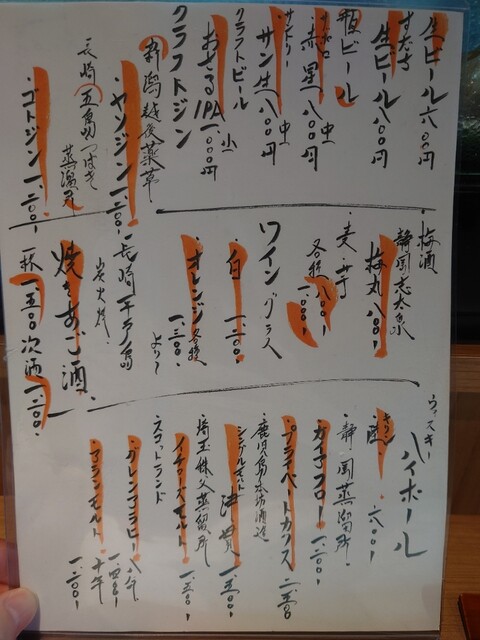 生ビール六〇〇円
すだち
生ビール八〇〇円
瓶ビール
サッポロ
赤星 中 八〇〇円
サントリー
サン生 中 八〇〇円
クラフトビール
おぜるIPA 小 一、〇〇〇円
クラフトジン
新潟越後薬草
・ヤソジン 一、二〇〇
長崎五島つばき蒸溜所
・ゴトジン 一、二〇〇
・梅酒
静岡志太泉
梅丸 八〇〇
・麦、芋
各種 八〇〇
一、〇〇〇
ワイン グラス
・白 一、二〇〇
・オレンジ 各種
一、三〇〇 より
長崎平戸島
炭火焼
焼きあご酒
一杯 一、五〇〇 次酒 一、二〇〇
ウィスキー
ハイボール
キリン
陸 六〇〇
静岡蒸溜所
ガイアフロー 一、二〇〇
・プライベートカスク 二、五〇〇
鹿児島本坊酒造
シングルモルト 津貫 一、五〇〇
埼玉秩父蒸留所
・イチローズモルト 一、五〇〇
スコットランド
・グレンアラヒー 八年
一、四〇〇
・アランモルト 十年
一、二〇〇